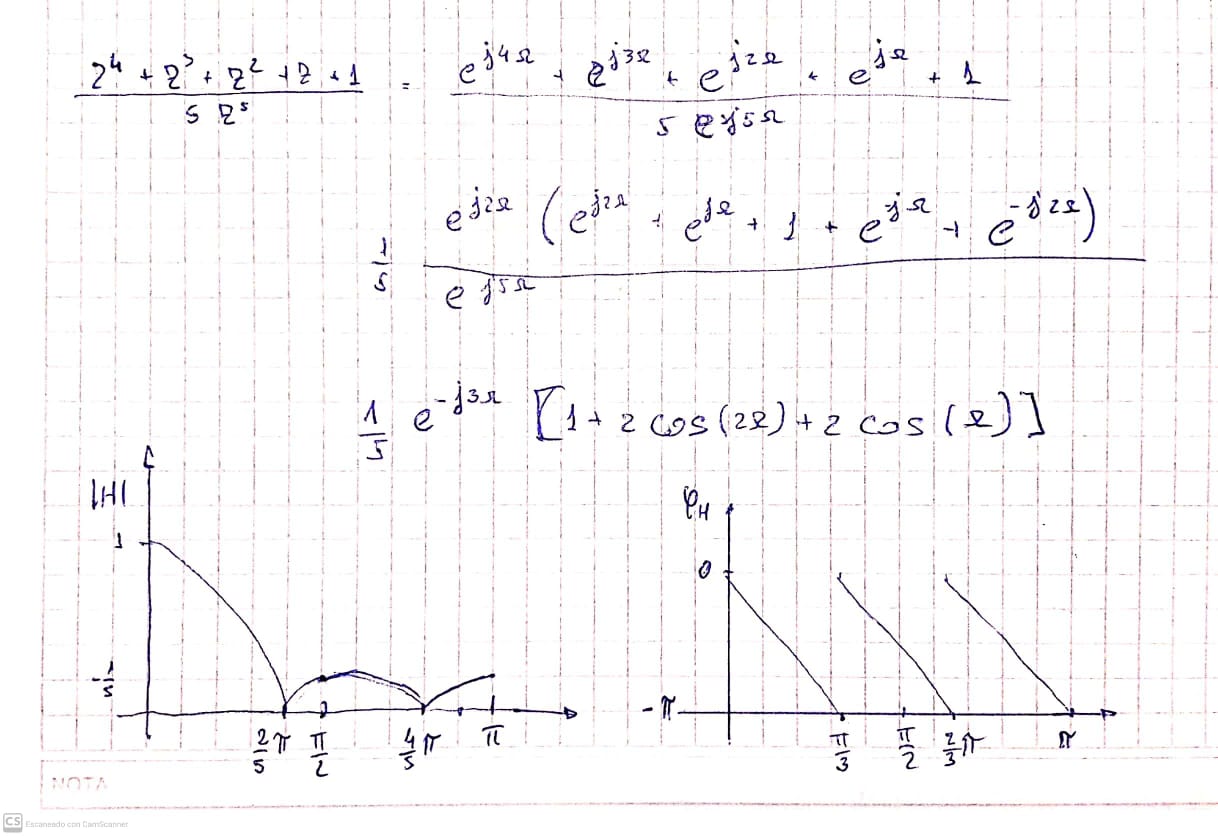 z⁴ + z³ + z² + z + 1 / 5 z⁵ = e^{j4Ω} + e^{j3Ω} + e^{j2Ω} + e^{jΩ} + 1 / 5 e^{j5Ω}
1/5 e^{j2Ω} (e^{j2Ω} + e^{jΩ} + 1 + e^{-jΩ} + e^{-j2Ω}) / e^{j5Ω}
1/5 e^{-j3Ω} [1 + 2 cos(2Ω) + 2 cos(Ω)]
|H|
1
1/5
2/5 π π/2 4/5 π π
φH
0
-π
π/3 π/2 2/3 π π
NOTA
CS Escaneado con CamScanner